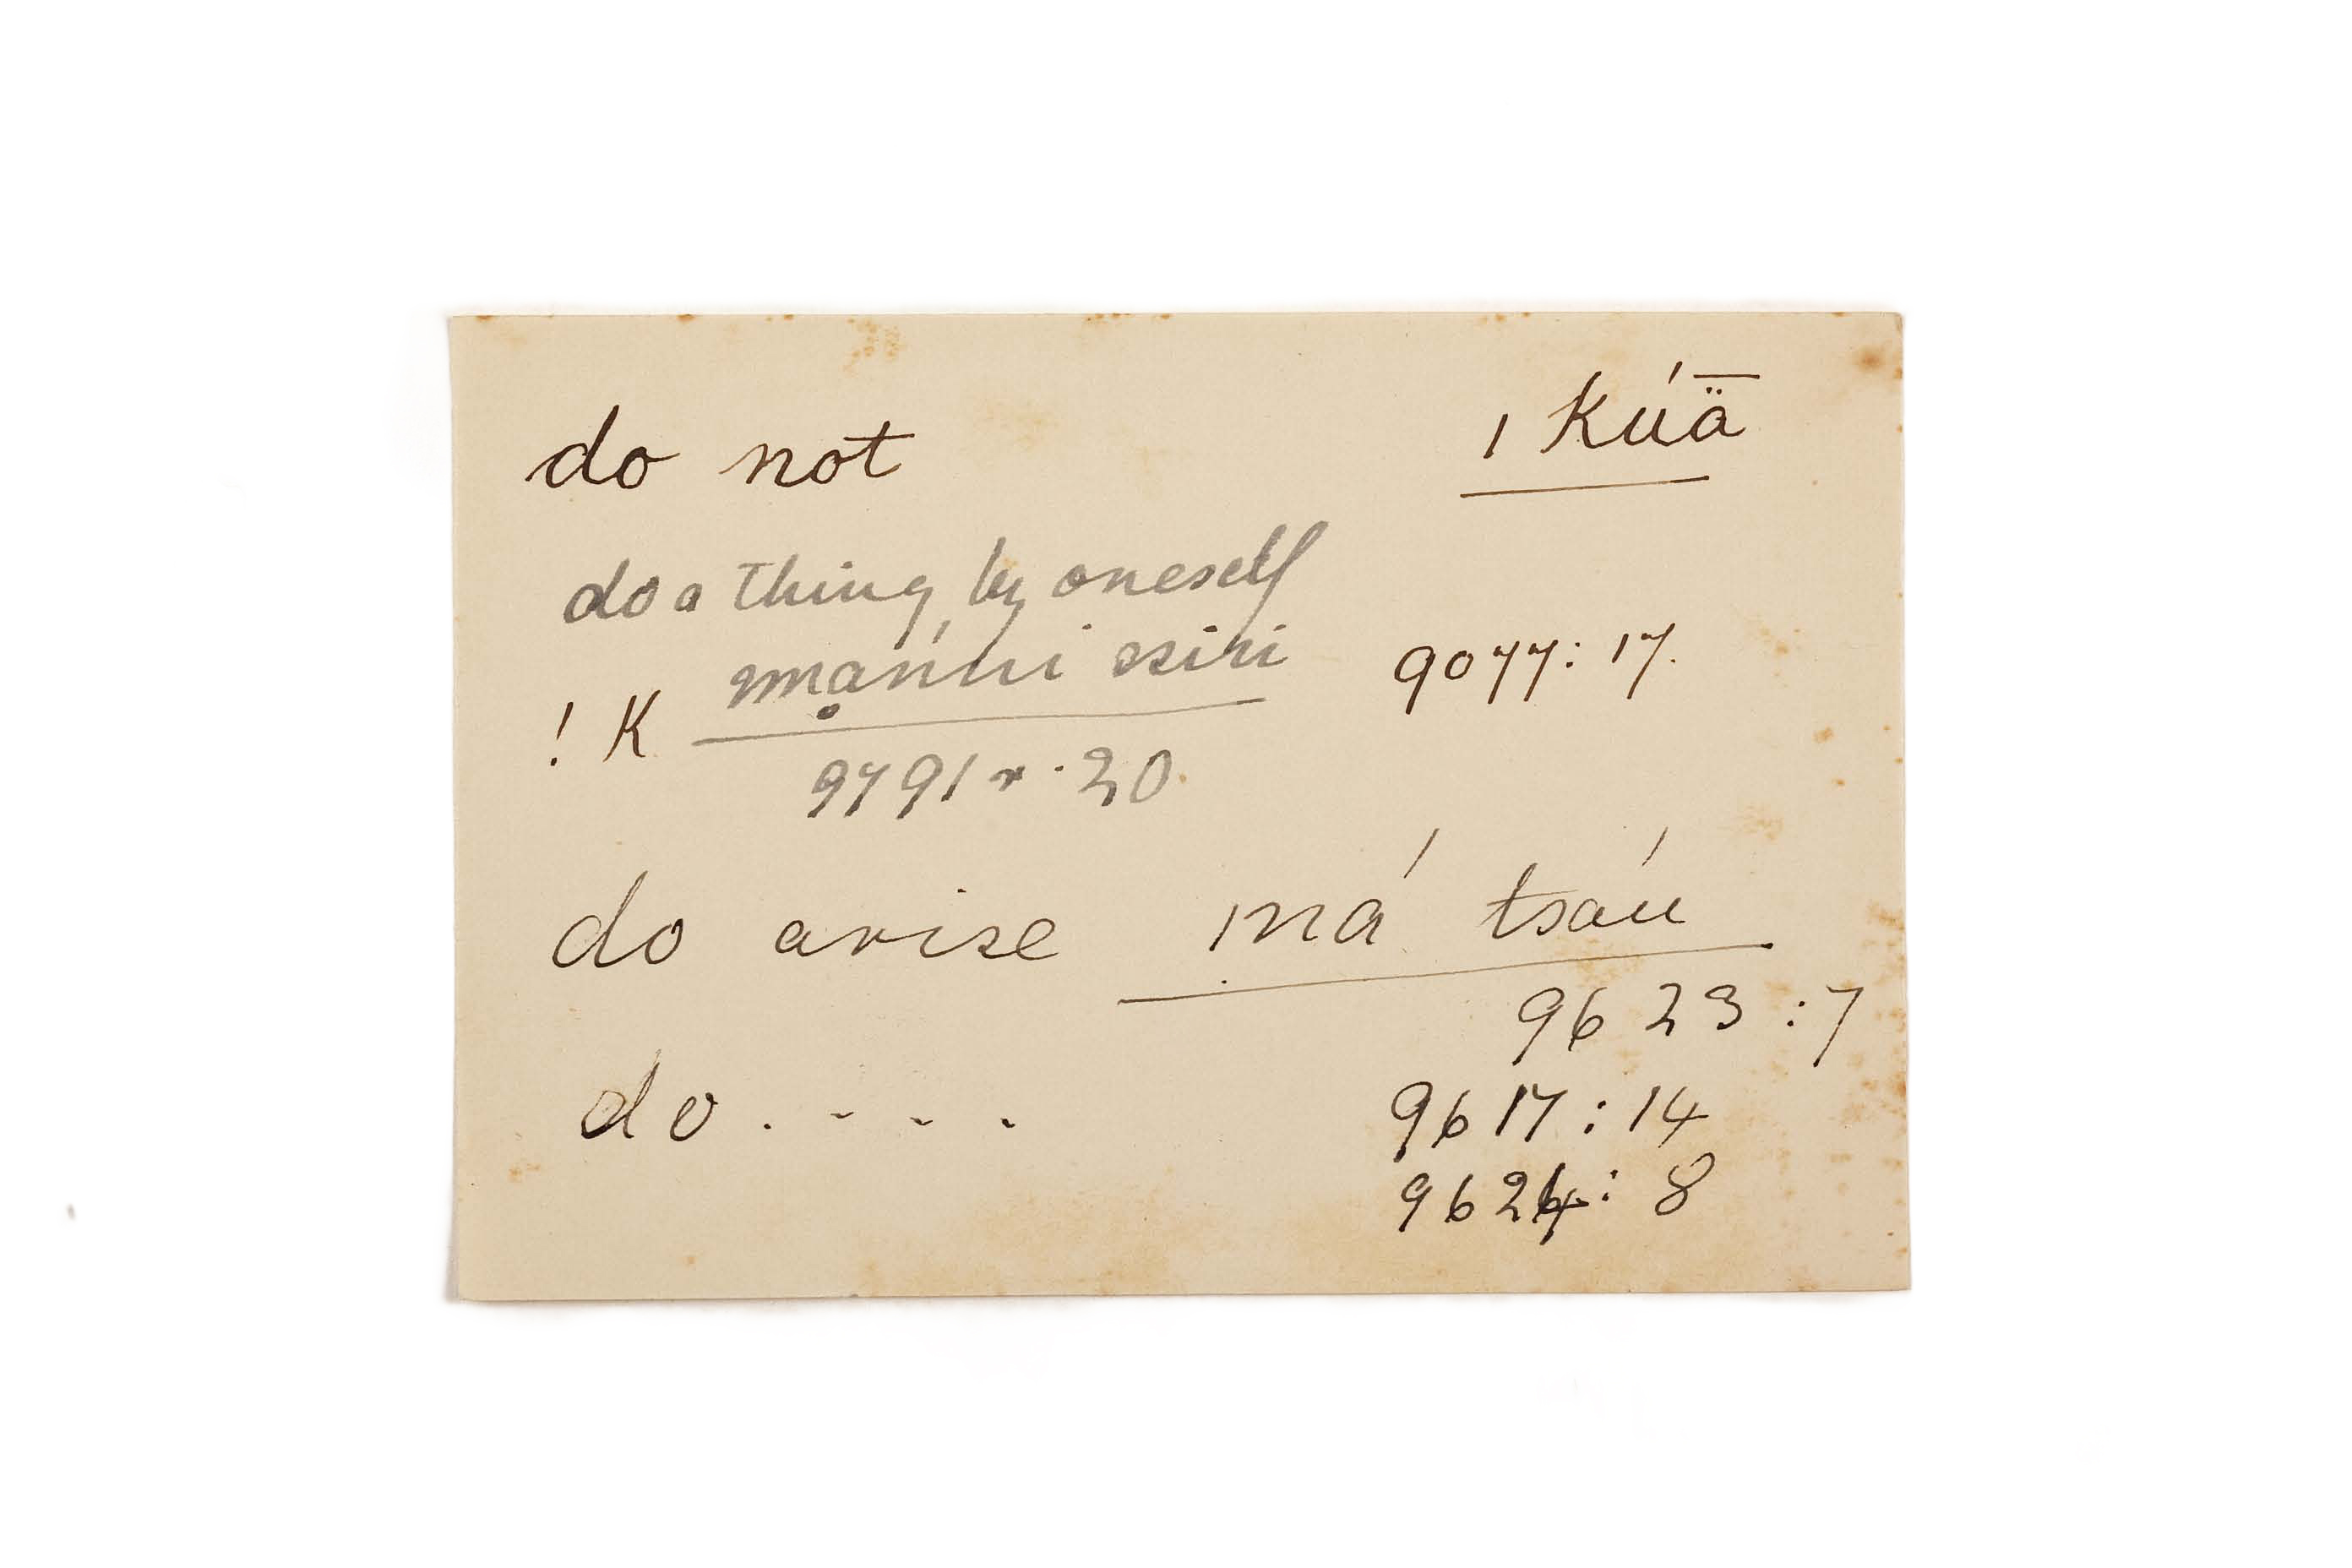 do not ı Kúā̈
do a thing by oneself
! K mạńni
9077: 17.
9791 r · 20.
do arise ıná tsaú
9623 : 7
do . - - . 9617 : 14
: 8